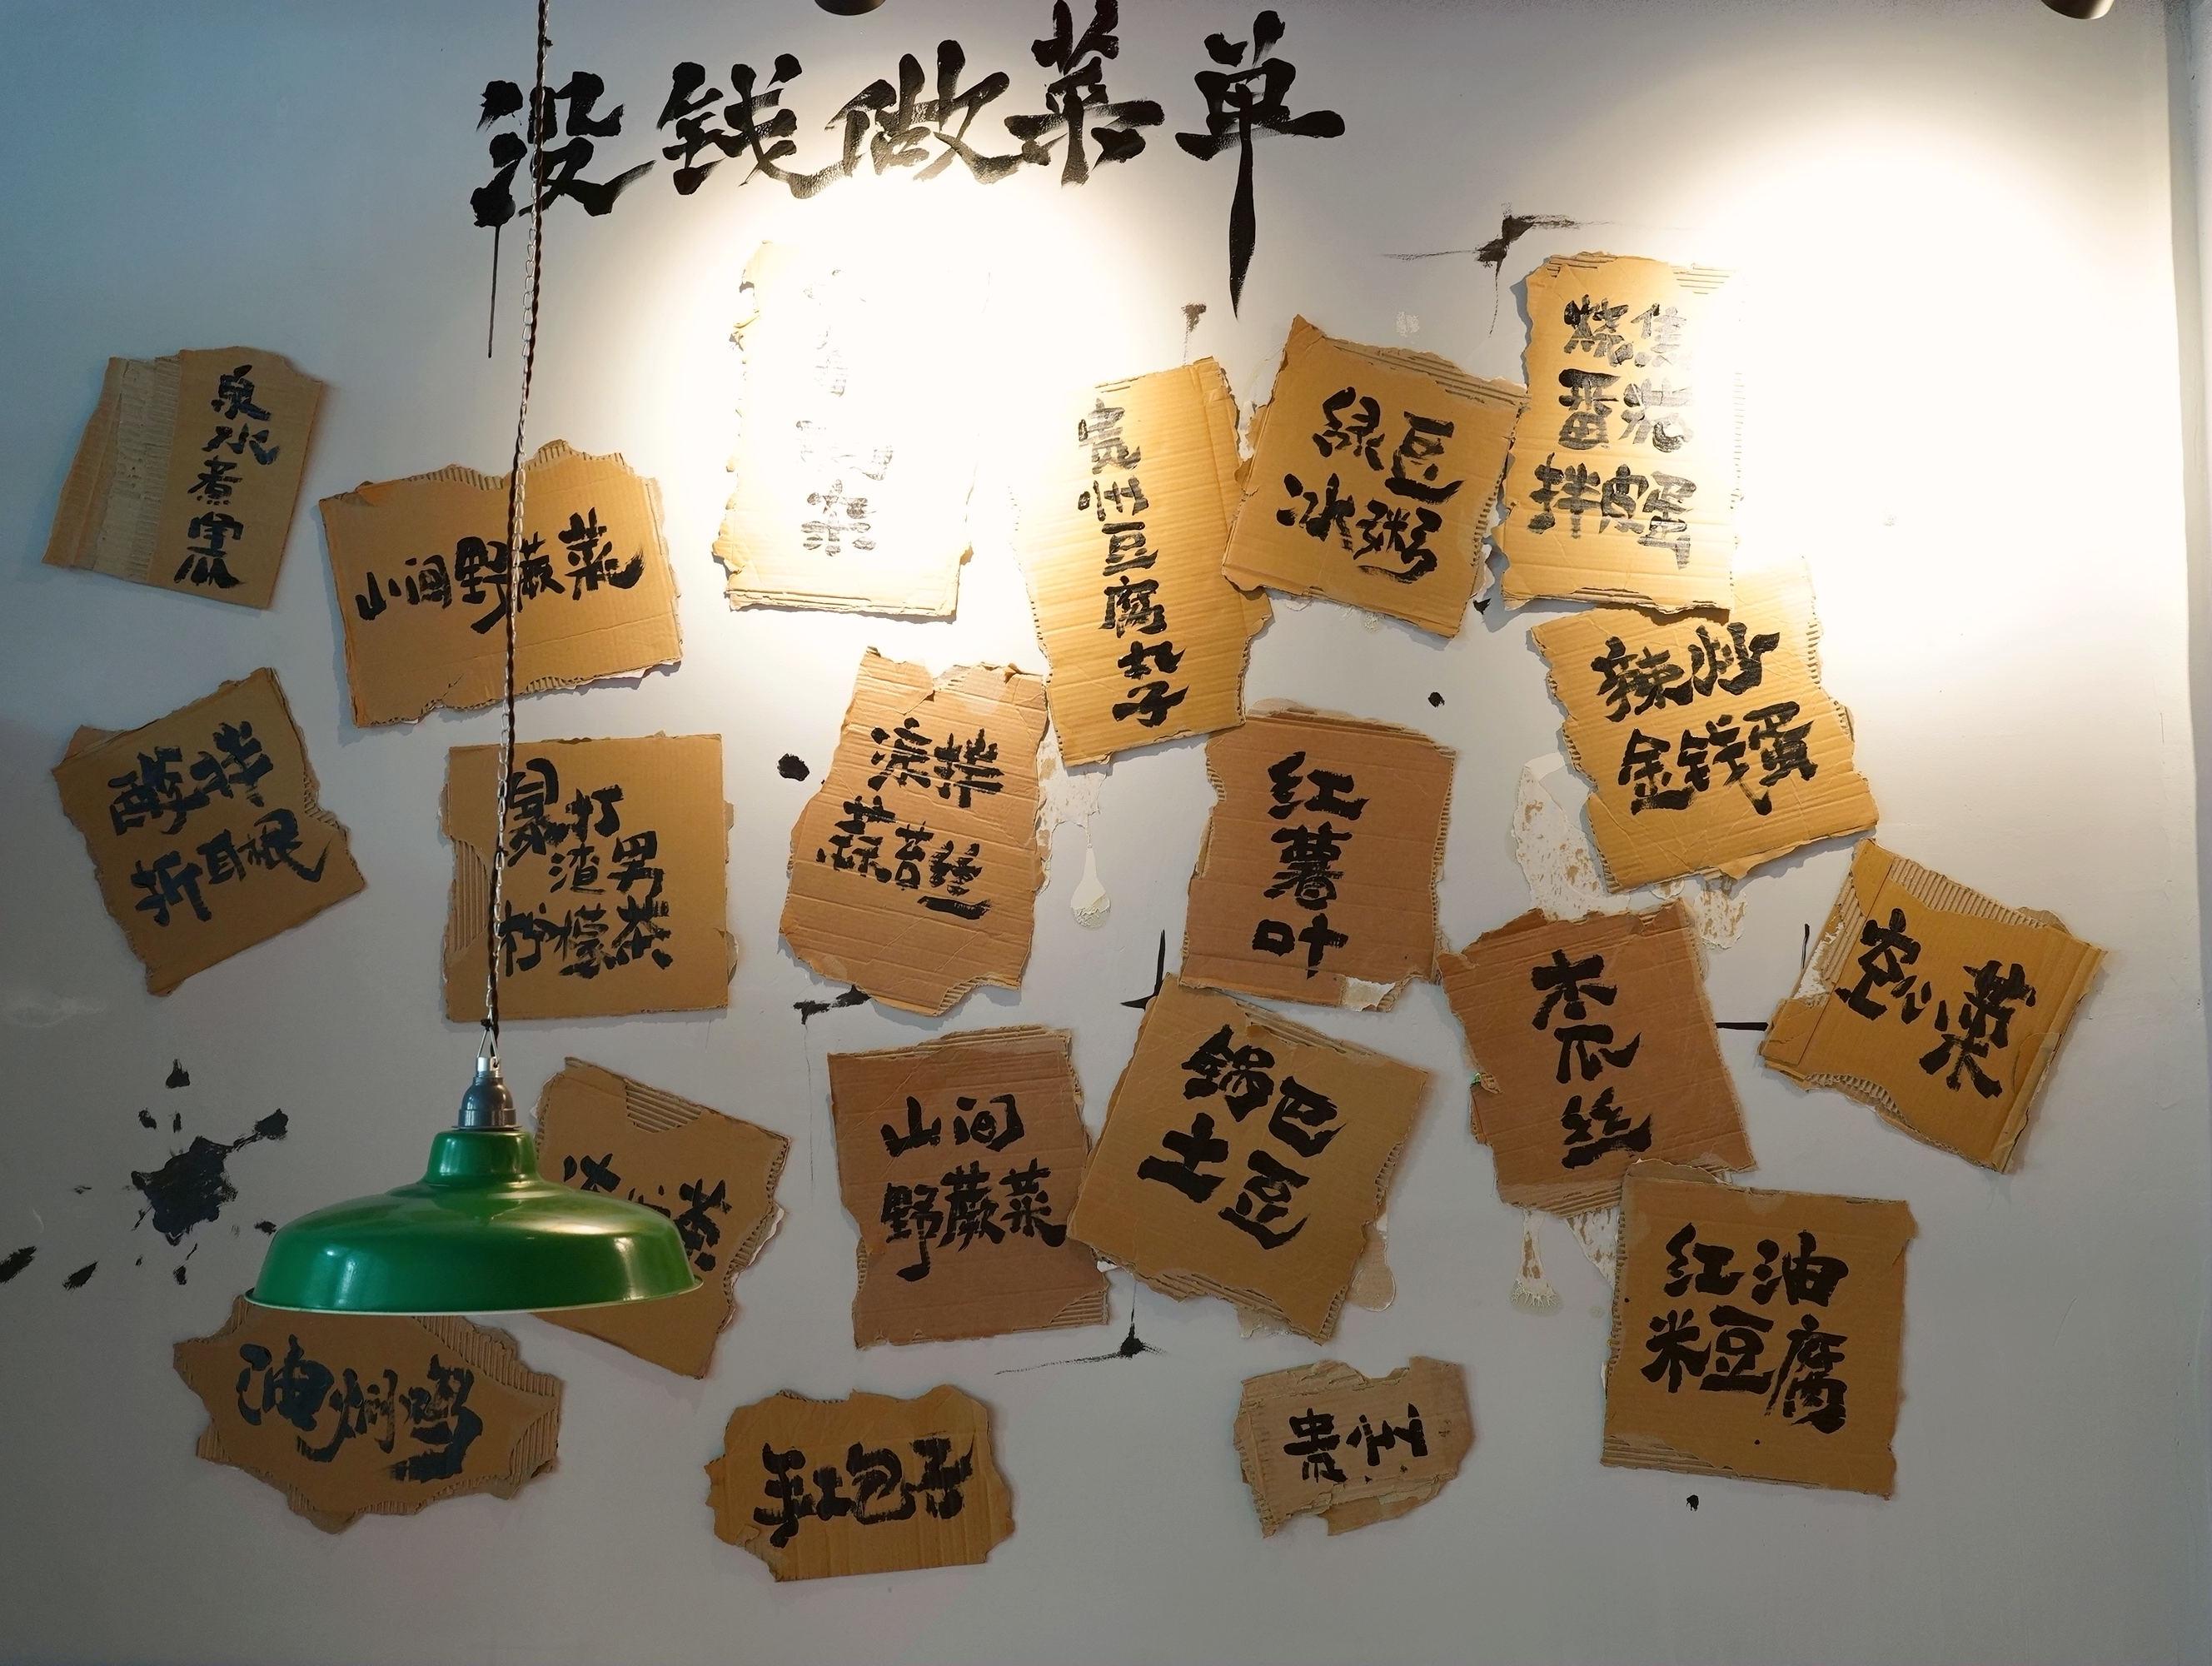 没钱做菜单
泉水煮
山间野蕨菜
绿豆
冰粥
烧焦
番茄
拌皮蛋
州豆腐丸子
辣炒
金钱蛋
酸拌
折耳根
暴打
渣男
柠檬茶
凉拌
蒜苔丝
红薯叶
木瓜丝
空心菜
山间
野蕨菜
锅巴
土豆
红油
米豆腐
油焖鸡
红包子
贵州